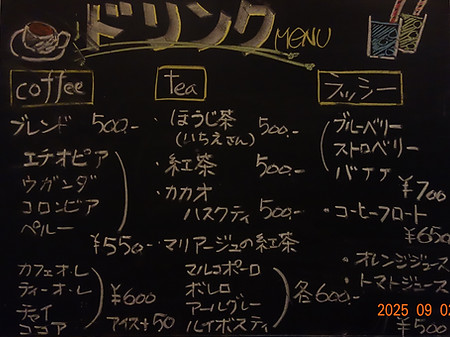 ドリンク MENU
coffee
ブレンド 500.-
エチオピア
ウガンダ
コロンビア
ペルー
¥550-
カフェオ・レ
ティーオ・レ
チャイ
ココア
¥600
アイス+50
tea
・ほうじ茶
(いちえさん) 500.-
・紅茶 500.-
・カカオ
ハスクティ 500.-
・マリアージュの紅茶
マルコポーロ
ボレロ
アールグレー
ルイボスティ
各600.-
ラッシー
ブルーベリー
ストロベリー
バナナ
¥700
・コーヒーフロート
¥650
・オレンジジュース
・トマトジュース
¥500
2025 09 0